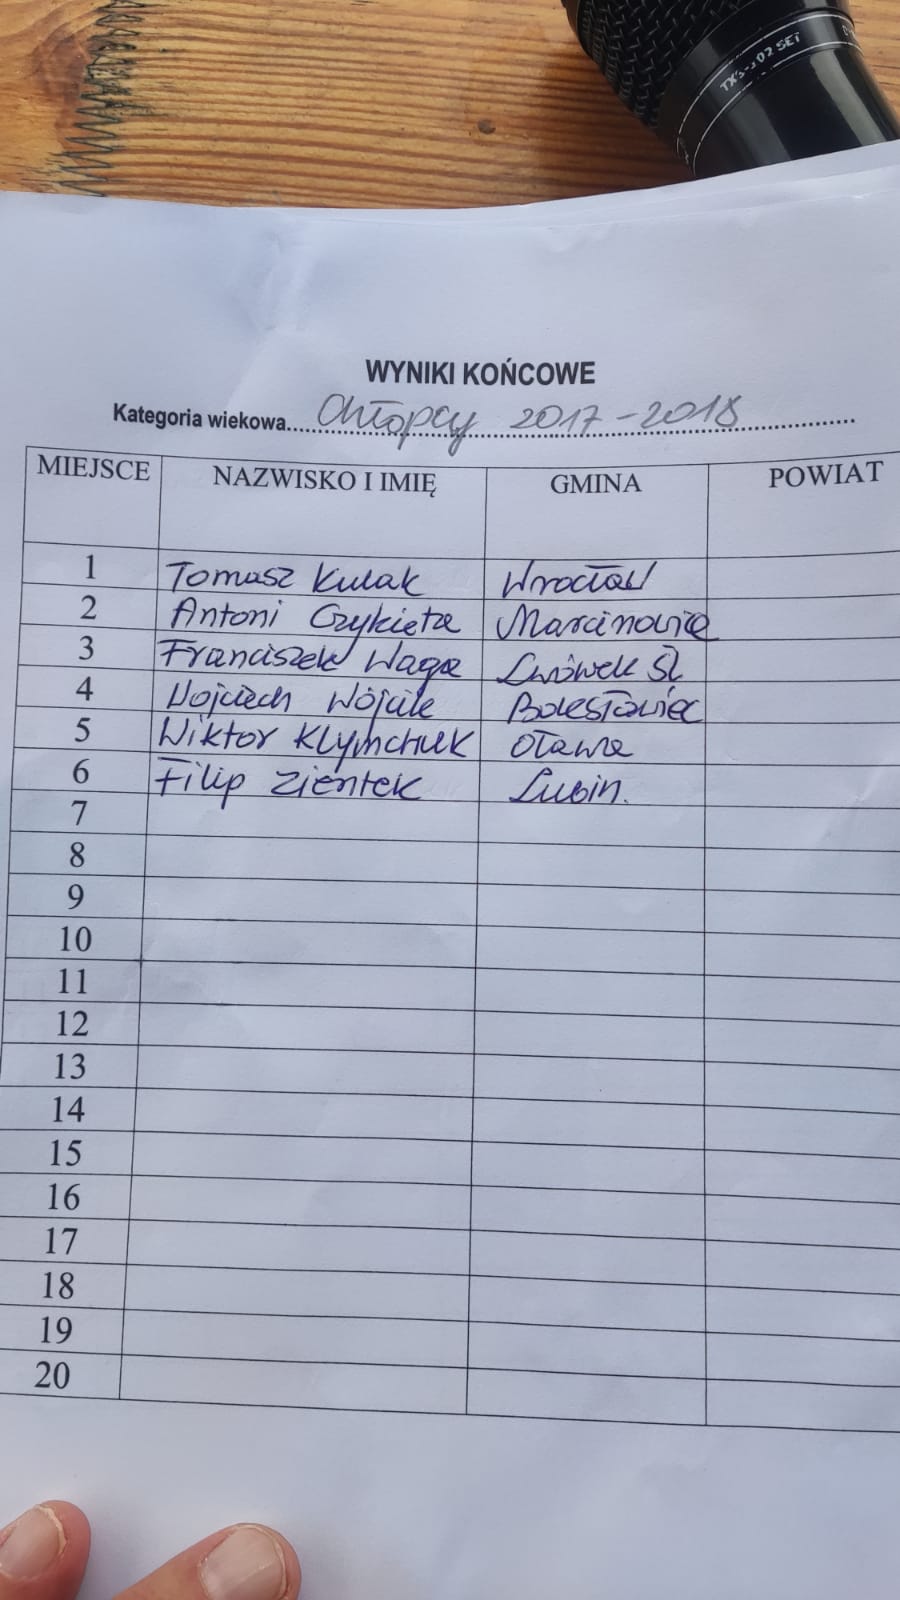 TXS-402 SET
WYNIKI KOŃCOWE
Kategoria wiekowa Chłopcy 2017-2018
MIEJSCE NAZWISKO I IMIĘ GMINA POWIAT
1 Tomasz Kulak Wrocław
2 Antoni Czykieta Marcinowice
3 Franciszek Waga Lwówek Śl
4 Wojciech Wójcik Bolesławiec
5 Wiktor Klymchuk Oława
6 Filip Zientek Lubin.
7
8
9
10
11
12
13
14
15
16
17
18
19
20